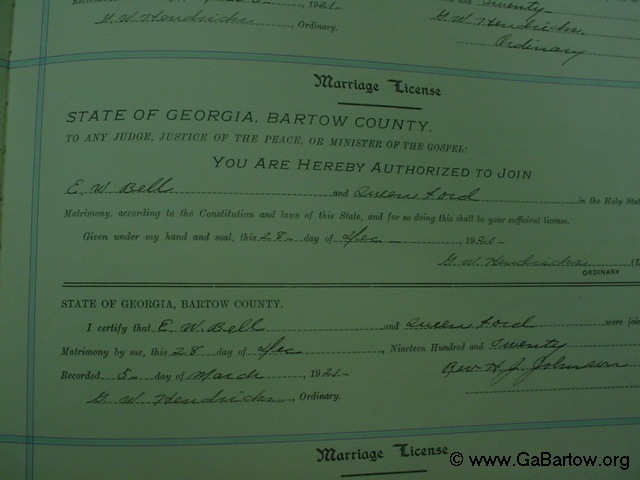 , 1921
Twenty
G. W. Hendricks, Ordinary.
G. W. Hendricks,
Ordinary
Marriage License
STATE OF GEORGIA, BARTOW COUNTY.
TO ANY JUDGE, JUSTICE OF THE PEACE, OR MINISTER OF THE GOSPEL:
YOU ARE HEREBY AUTHORIZED TO JOIN
E. W. Bell and Queen Ford in the Holy
Matrimony, according to the Constitution and laws of this State, and for so doing this shall be your sufficient license.
Given under my hand and seal, this 28 day of Dec, 192
G. W. Hendricks
ORDINARY
STATE OF GEORGIA, BARTOW COUNTY.
I certify that E. W. Bell and Queen Ford were
Matrimony by me, this 28 day of Dec, Nineteen Hundred and Twenty
Recorded 5 day of March, 1921 Rev. H. J. Johnson
G. W. Hendricks, Ordinary.
Marriage License
© www.GaBartow.org